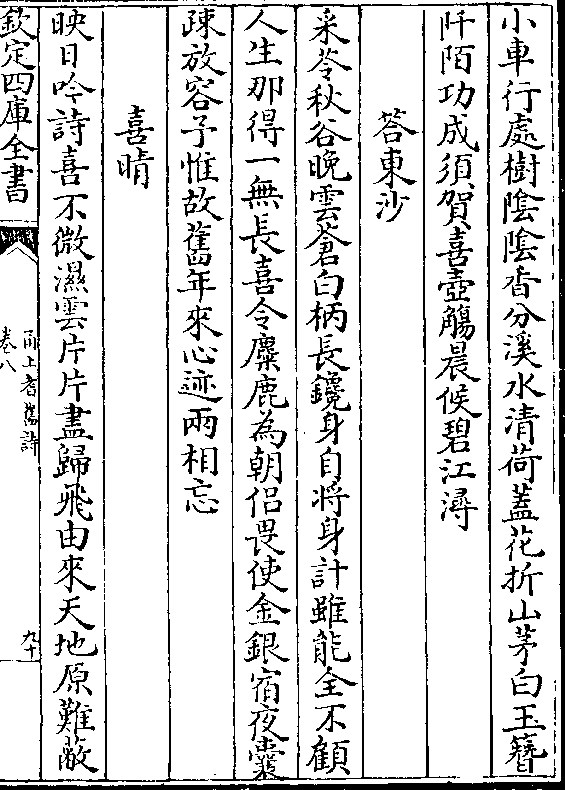 小車行處樹隂隂香分溪水清荷蓋花折山茅白玉簪
阡陌功成須賀喜壺觴晨候碧江潯
答東沙
采苓秋谷晚雲蒼白柄長鑱身自將身計雖能全不顧
人生那得一無長喜令麋鹿為朝侣畏使金銀宿夜囊
疎放容予惟故舊年來心迹兩相忘
喜晴
映日吟詩喜不微濕雲片片盡歸飛由來天地原難蔽
欽定四庫全書
甬上耆舊詩
卷八
九十